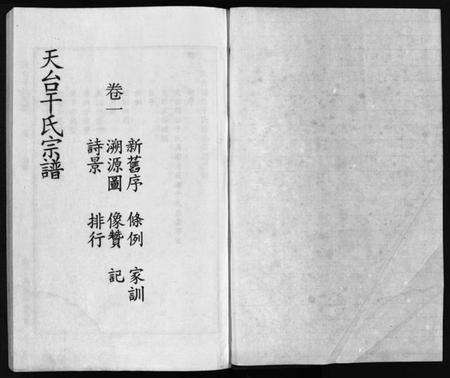 天台干氏宗譜
卷一
新舊序 條例 家訓
溯源圖 像贊 記
詩景 排行